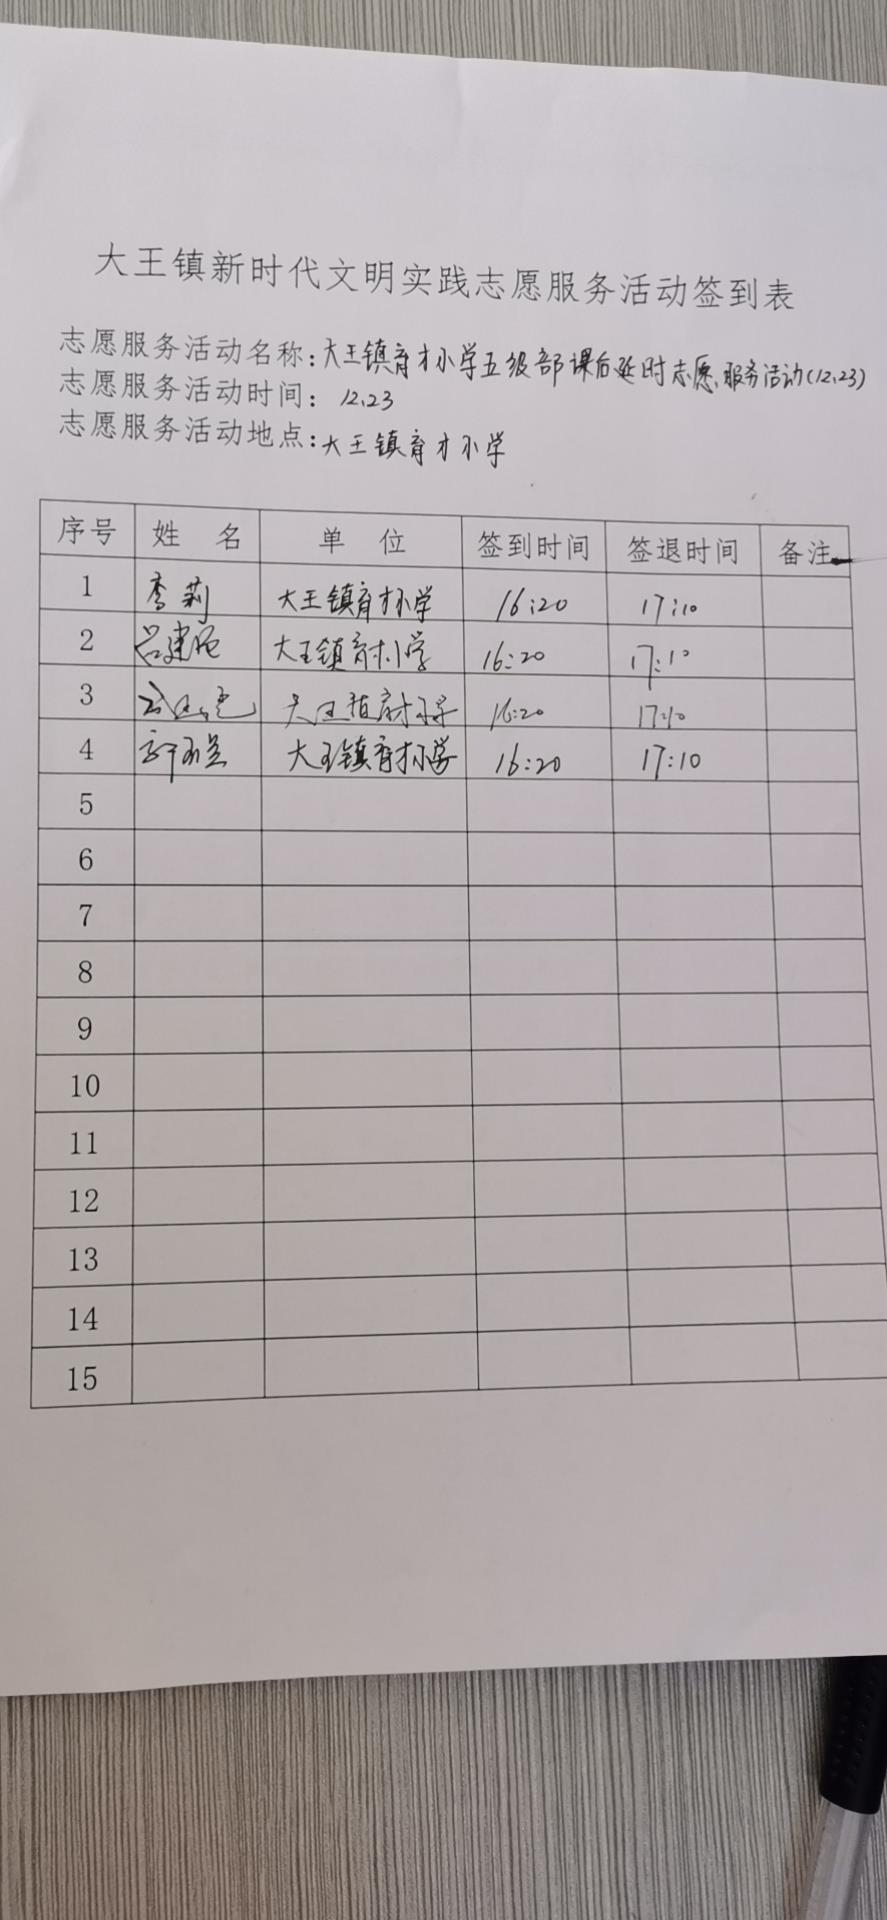 大王镇新时代文明实践志愿服务活动签到表
志愿服务活动名称:大王镇育才小学五级部课后延时志愿服务活动(12.23)
志愿服务活动时间: 12.23
志愿服务活动地点:大王镇育才小学
序号 姓 名 单 位 签到时间 签退时间 备注
1 李莉 大王镇育才小学 16:20 17:10
2 吕建 大王镇育才小学 16:20 17:10
3 大王镇育才小学 16:20 17:10
4 大王镇育才小学 16:20 17:10
5
6
7
8
9
10
11
12
13
14
15